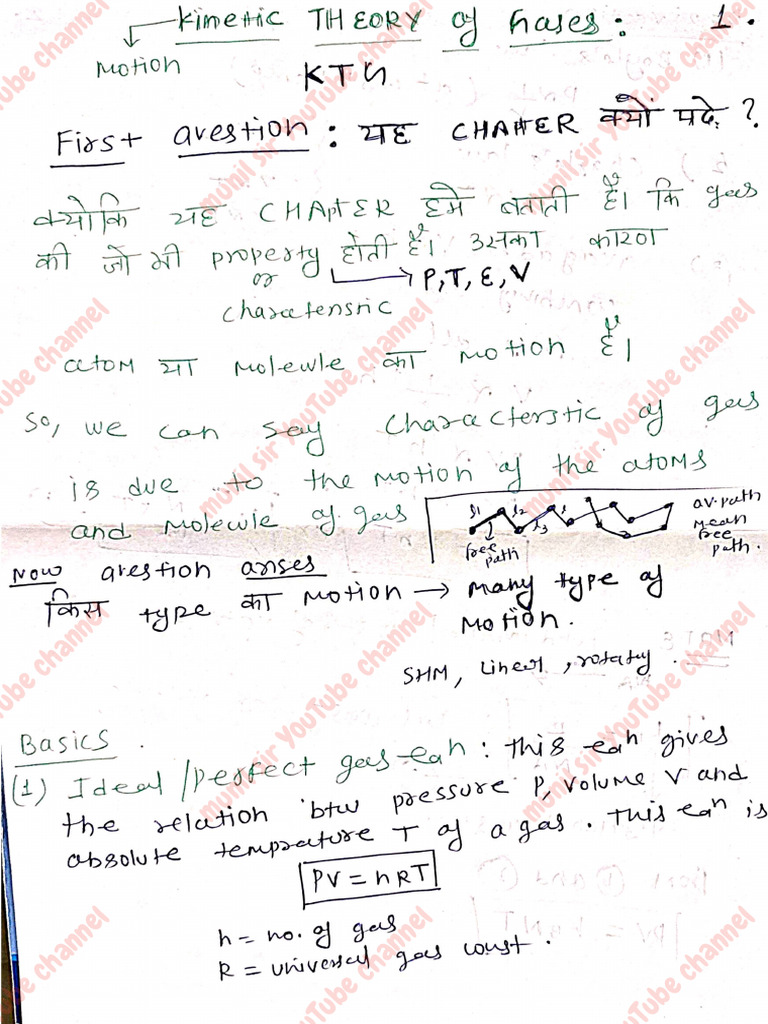 Kinetic THEORY of Gases: 1.
Motion
KTG
First Question: यह CHAPTER क्यों पढे ?
क्योकि यह CHAPTER हमे बताती है। कि gas
की जो भी property होती है। उसका कारण
or → P, T, E, V
charactenstic
atom या molecule का motion है।
So, we can say characterstic of gas
is due to the motion of the atoms
and molecule of gas
s1 s2 s3 s
free path
av. path
mean free path.
Now question arises
किस type का motion → many type of
motion.
SHM, linear, rotatry.
Basics.
(1) Ideal/perfect gas eqn: this eqn gives
the relation btw pressure P, volume V and
absolute temprature T of a gas. This eqn is
PV = nRT
n = no. of gas
R = universal gas const.
munil sir YouTube channel